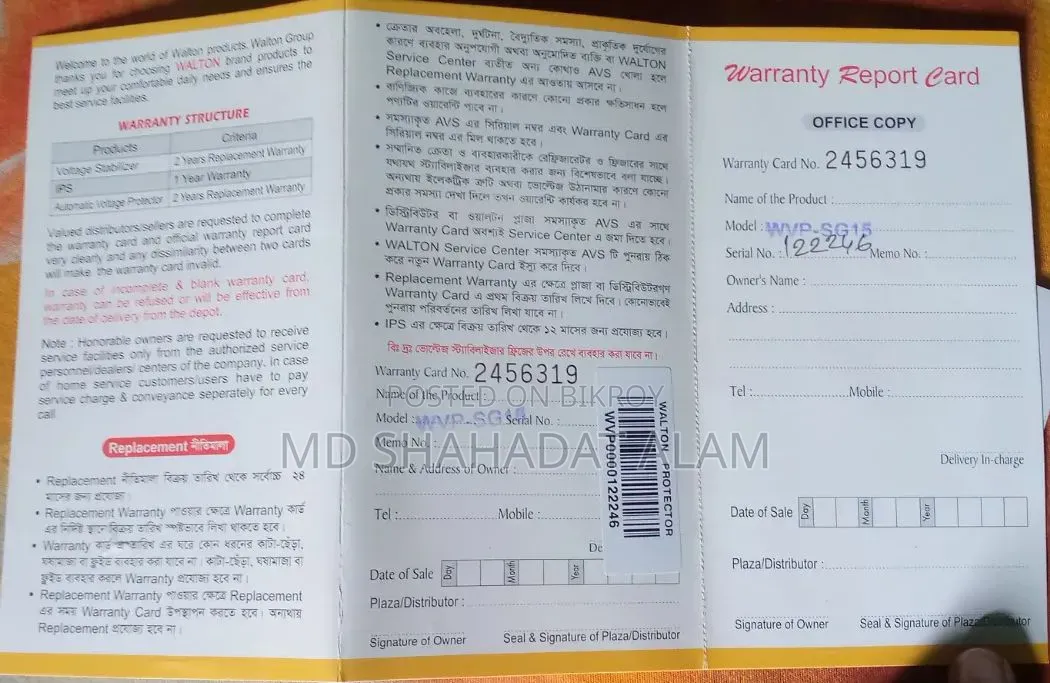 Welcome to the world of Walton products. Walton Group
thanks you for choosing WALTON brand products to
meet up your comfortable daily needs and ensures the
best service facilities.
WARRANTY STRUCTURE
Products Criteria
Voltage Stabilizer 2 Years Replacement Warranty
IPS 1 Year Warranty
Automatic Voltage Protector 2 Years Replacement Warranty
Valued distributors/sellers are requested to complete
the warranty card and official warranty report card
very clearly and any dissimilarity between two cards
will make the warranty card invalid.
In case of incomplete & blank warranty card,
warranty can be refused or will be effective from
the date of delivery from the depot.
Note : Honorable owners are requested to receive
service facilities only from the authorized service
personnel/dealers/ centers of the company. In case
of home service customers/users have to pay
service charge & conveyance seperately for every
call
Replacement নীতিমালা
• Replacement নীতিমালা বিক্রয় তারিখ থেকে সর্বোচ্চ ২৪
মাসের জন্য প্রযোজ্য।
• Replacement Warranty পাওয়ার ক্ষেত্রে Warranty কার্ড
এর নির্দিষ্ট স্থানে বিক্রয় তারিখ স্পষ্টভাবে লিখা থাকতে হবে।
• Warranty কার্ড এর ঘরে কোন ধরনের কাটা-ছেঁড়া,
ঘষামাজা বা ফ্লুইড ব্যবহার করা যাবে না। কাটা-ছেঁড়া, ঘষামাজা বা
ফ্লুইড ব্যবহার করলে Warranty প্রযোজ্য হবে না।
• Replacement Warranty পাওয়ার ক্ষেত্রে Replacement
এর সময় Warranty Card উপস্থাপন করতে হবে। অন্যথায়
Replacement প্রযোজ্য হবে না।
• ক্রেতার অবহেলা, দুর্ঘটনা, বৈদ্যুতিক সমস্যা, প্রাকৃতিক দুর্যোগের
কারণে ব্যবহার অনুপযোগী অথবা অনুমোদিত ব্যক্তি বা WALTON
Service Center ব্যতীত অন্য কোথাও AVS খোলা হলে
Replacement Warranty এর আওতায় আসবে না।
• বাণিজ্যিক কাজে ব্যবহারের কারণে কোনো প্রকার ক্ষতিসাধন হলে
পণ্যটির ওয়ারেন্টি পাবে না।
• সমস্যাকৃত AVS এর সিরিয়াল নম্বর এবং Warranty Card এর
সিরিয়াল নম্বর এর মিল থাকতে হবে।
• সম্মানিত ক্রেতা ও ব্যবহারকারীকে রেফ্রিজারেটর ও ফ্রিজারের সাথে
যথাযথ স্ট্যাবিলাইজার ব্যবহার করার জন্য বিশেষভাবে বলা যাচ্ছে।
অন্যথায় ইলেকট্রিক ত্রুটি অথবা ভোল্টেজ উঠানামার কারণে কোনো
প্রকার সমস্যা দেখা দিলে তখন ওয়ারেন্টি কার্যকর হবে না।
• ডিস্ট্রিবিউটর বা ওয়ালটন প্লাজা সমস্যাকৃত AVS এর সাথে
Warranty Card অবশ্যই Service Center এ জমা দিতে হবে।
• WALTON Service Center সমস্যাকৃত AVS টি পুনরায় ঠিক
করে নতুন Warranty Card ইস্যু করে দিবে।
• Replacement Warranty এর ক্ষেত্রে প্লাজা বা ডিস্ট্রিবিউটরগণ
Warranty Card এ প্রথম বিক্রয় তারিখ লিখে দিবে। কোনোভাবেই
পুনরায় পরিবর্তনের তারিখ লিখা যাবে না।
• IPS এর ক্ষেত্রে বিক্রয় তারিখ থেকে ১২ মাসের জন্য প্রযোজ্য হবে।
বিঃ দ্রঃ ভোল্টেজ স্ট্যাবিলাইজার ফ্রিজের উপর রেখে ব্যবহার করা যাবে না।
Warranty Card No. 2456319
Name of the Product :
Model : WVP-SG15 Serial No. :
Memo No. :
Name & Address of Owner :
Tel : Mobile :
De
Date of Sale Day Month Year
Plaza/Distributor :
Signature of Owner Seal & Signature of Plaza/Distributor
WALTON PROTECTOR
WVP0000122246
POSTED ON BIKROY
MD SHAHADAT ALAM
Warranty Report Card
OFFICE COPY
Warranty Card No. 2456319
Name of the Product :
Model : WVP-SG15
Serial No. : 122246 Memo No. :
Owner's Name :
Address :
Tel : Mobile :
Delivery In-charge
Date of Sale Day Month Year
Plaza/Distributor :
Signature of Owner Seal & Signature of Plaza/Distributor